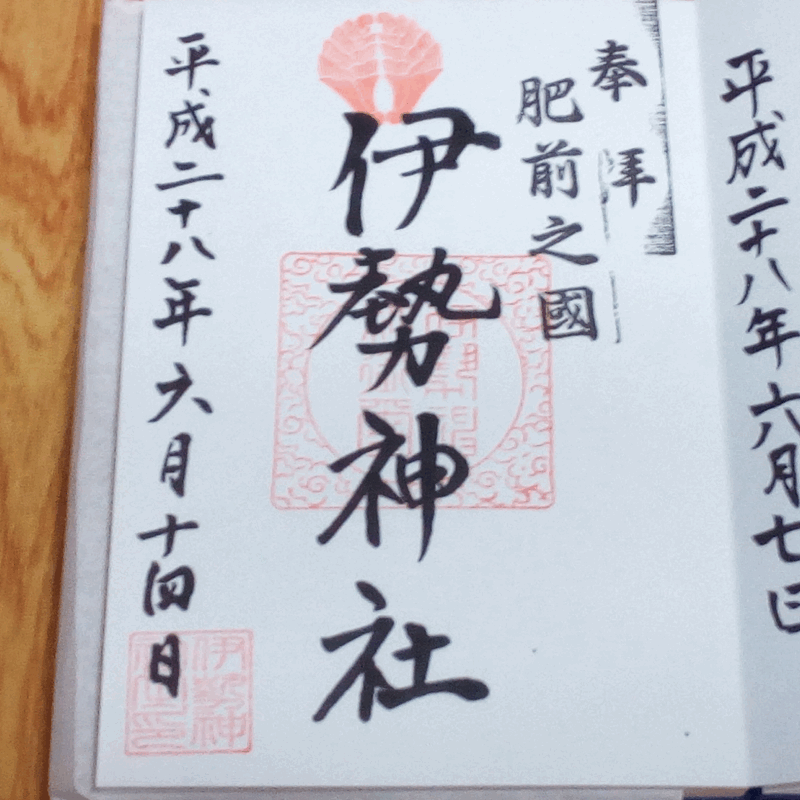 平成二十八年六月七日
奉拝
肥前之國
伊勢神社
平成二十八年六月十四日
伊勢神